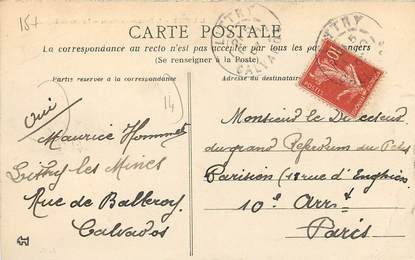 15+
CARTE POSTALE
La correspondance au recto n'est pas acceptée par tous les pays étrangers
(Se renseigner à la Poste)
Partie réservée à la correspondance
Adresse du destinataire
LITTRY
CALVADOS
14
Oui
Maurice Hommet
Littry les Mines
Rue de Balleroy
Calvados
Monsieur le Directeur
du grand Referendum du Petit
Parisien (18 rue d'Enghien
10e Arrt
Paris